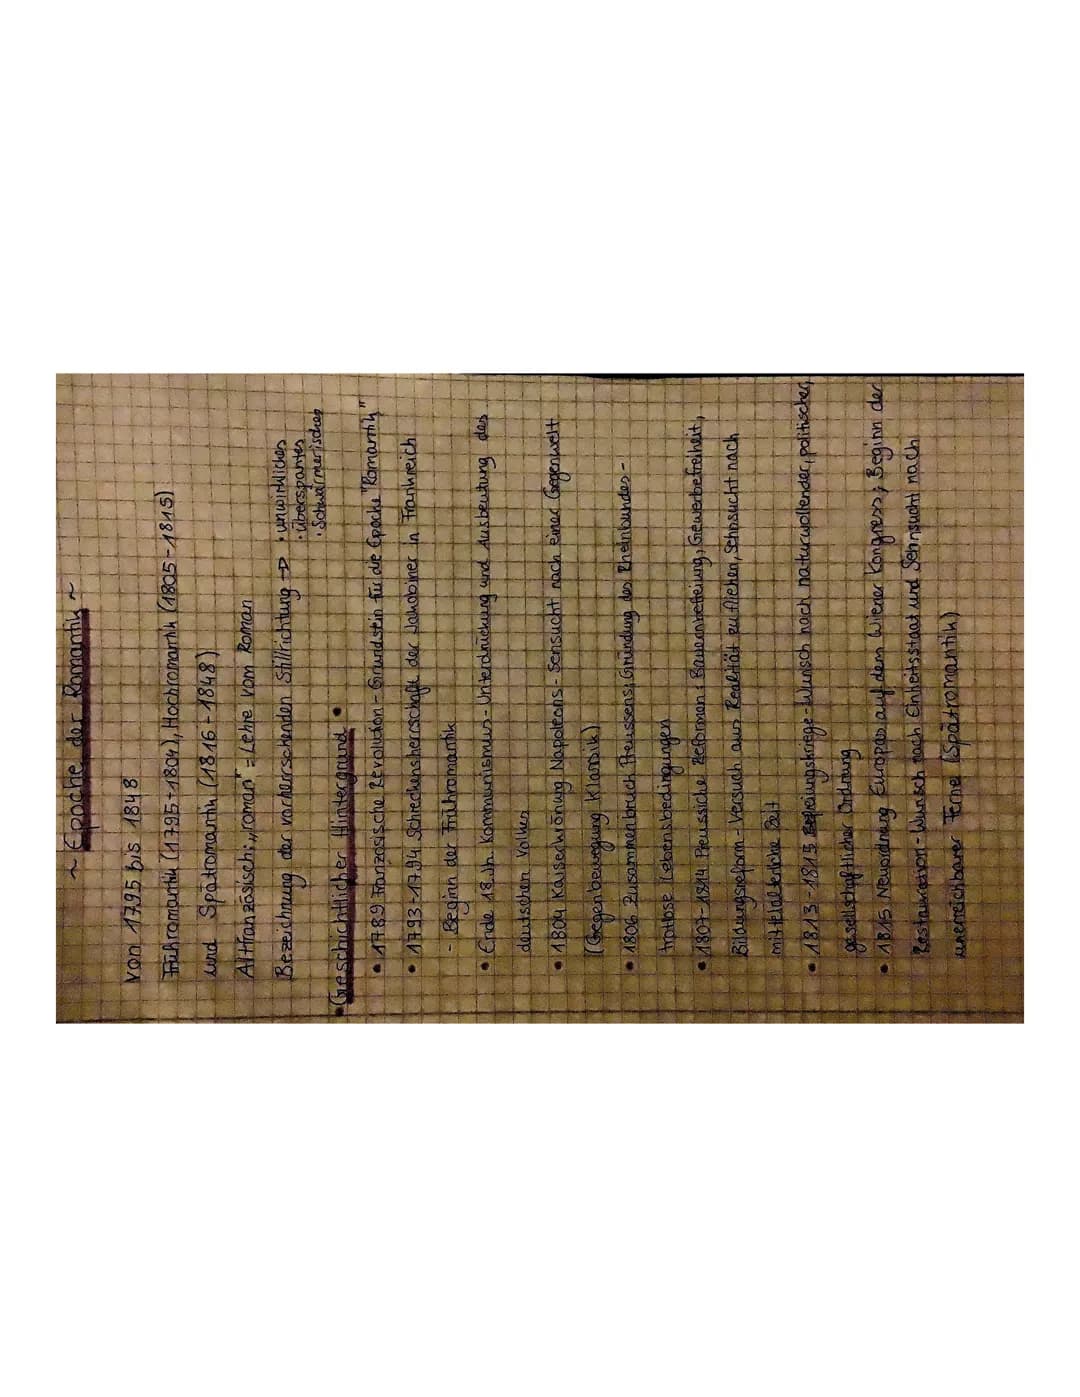 ~ Epoche der Romantik ~
Von 1795 bis 1848
Frühromantik (1795-1804), Hochromantik (1805-1815)
und Spätromantik (1816-1848)
Altfranzösisch: „roman" = Lehre vom Roman
Bezeichnung der vorherrschenden Stilrichtung → • unwirkliches
• Überspantes
• Schwärmerisches
• Geschichtlicher Hintergrund •
• 1789 Französische Revolution - Grundstein für die Epoche "Romantik"
• 1793-1794 Schreckensherrschaft der Jakobiner in Frankreich
- Beginn der Frühromantik
• Ende 18.Jh. Kommunismus - Unterdrückung und Ausbeutung des
deutschen Volkes
• 1804 Kaiserkrönung Napoleons - Sensucht nach einer Gegenwelt
(Gegenbewegung Klassik)
• 1806 Zusammenbruch Preussens; Gründung des Rheinbundes -
trostlose Lebensbedingungen
• 1807-1814 Preussiche Reformen: Bauernbefreiung, Gewerbefreiheit,
Bildungsreform - Versuch aus Realität zu fliehen, Sehnsucht nach
mittelalterliche Zeit
• 1813-1815 Befreiungskriege - Wunsch nach naturwollender, politischer,
gesellschaftlicher Ordnung
• 1815 Neuordnung Europas auf dem Wiener Kongress; Beginn der
Restauration - Wunsch nach Einheitsstaat und Sehnsucht nach
unerreichbarer Ferne (Spätromantik)